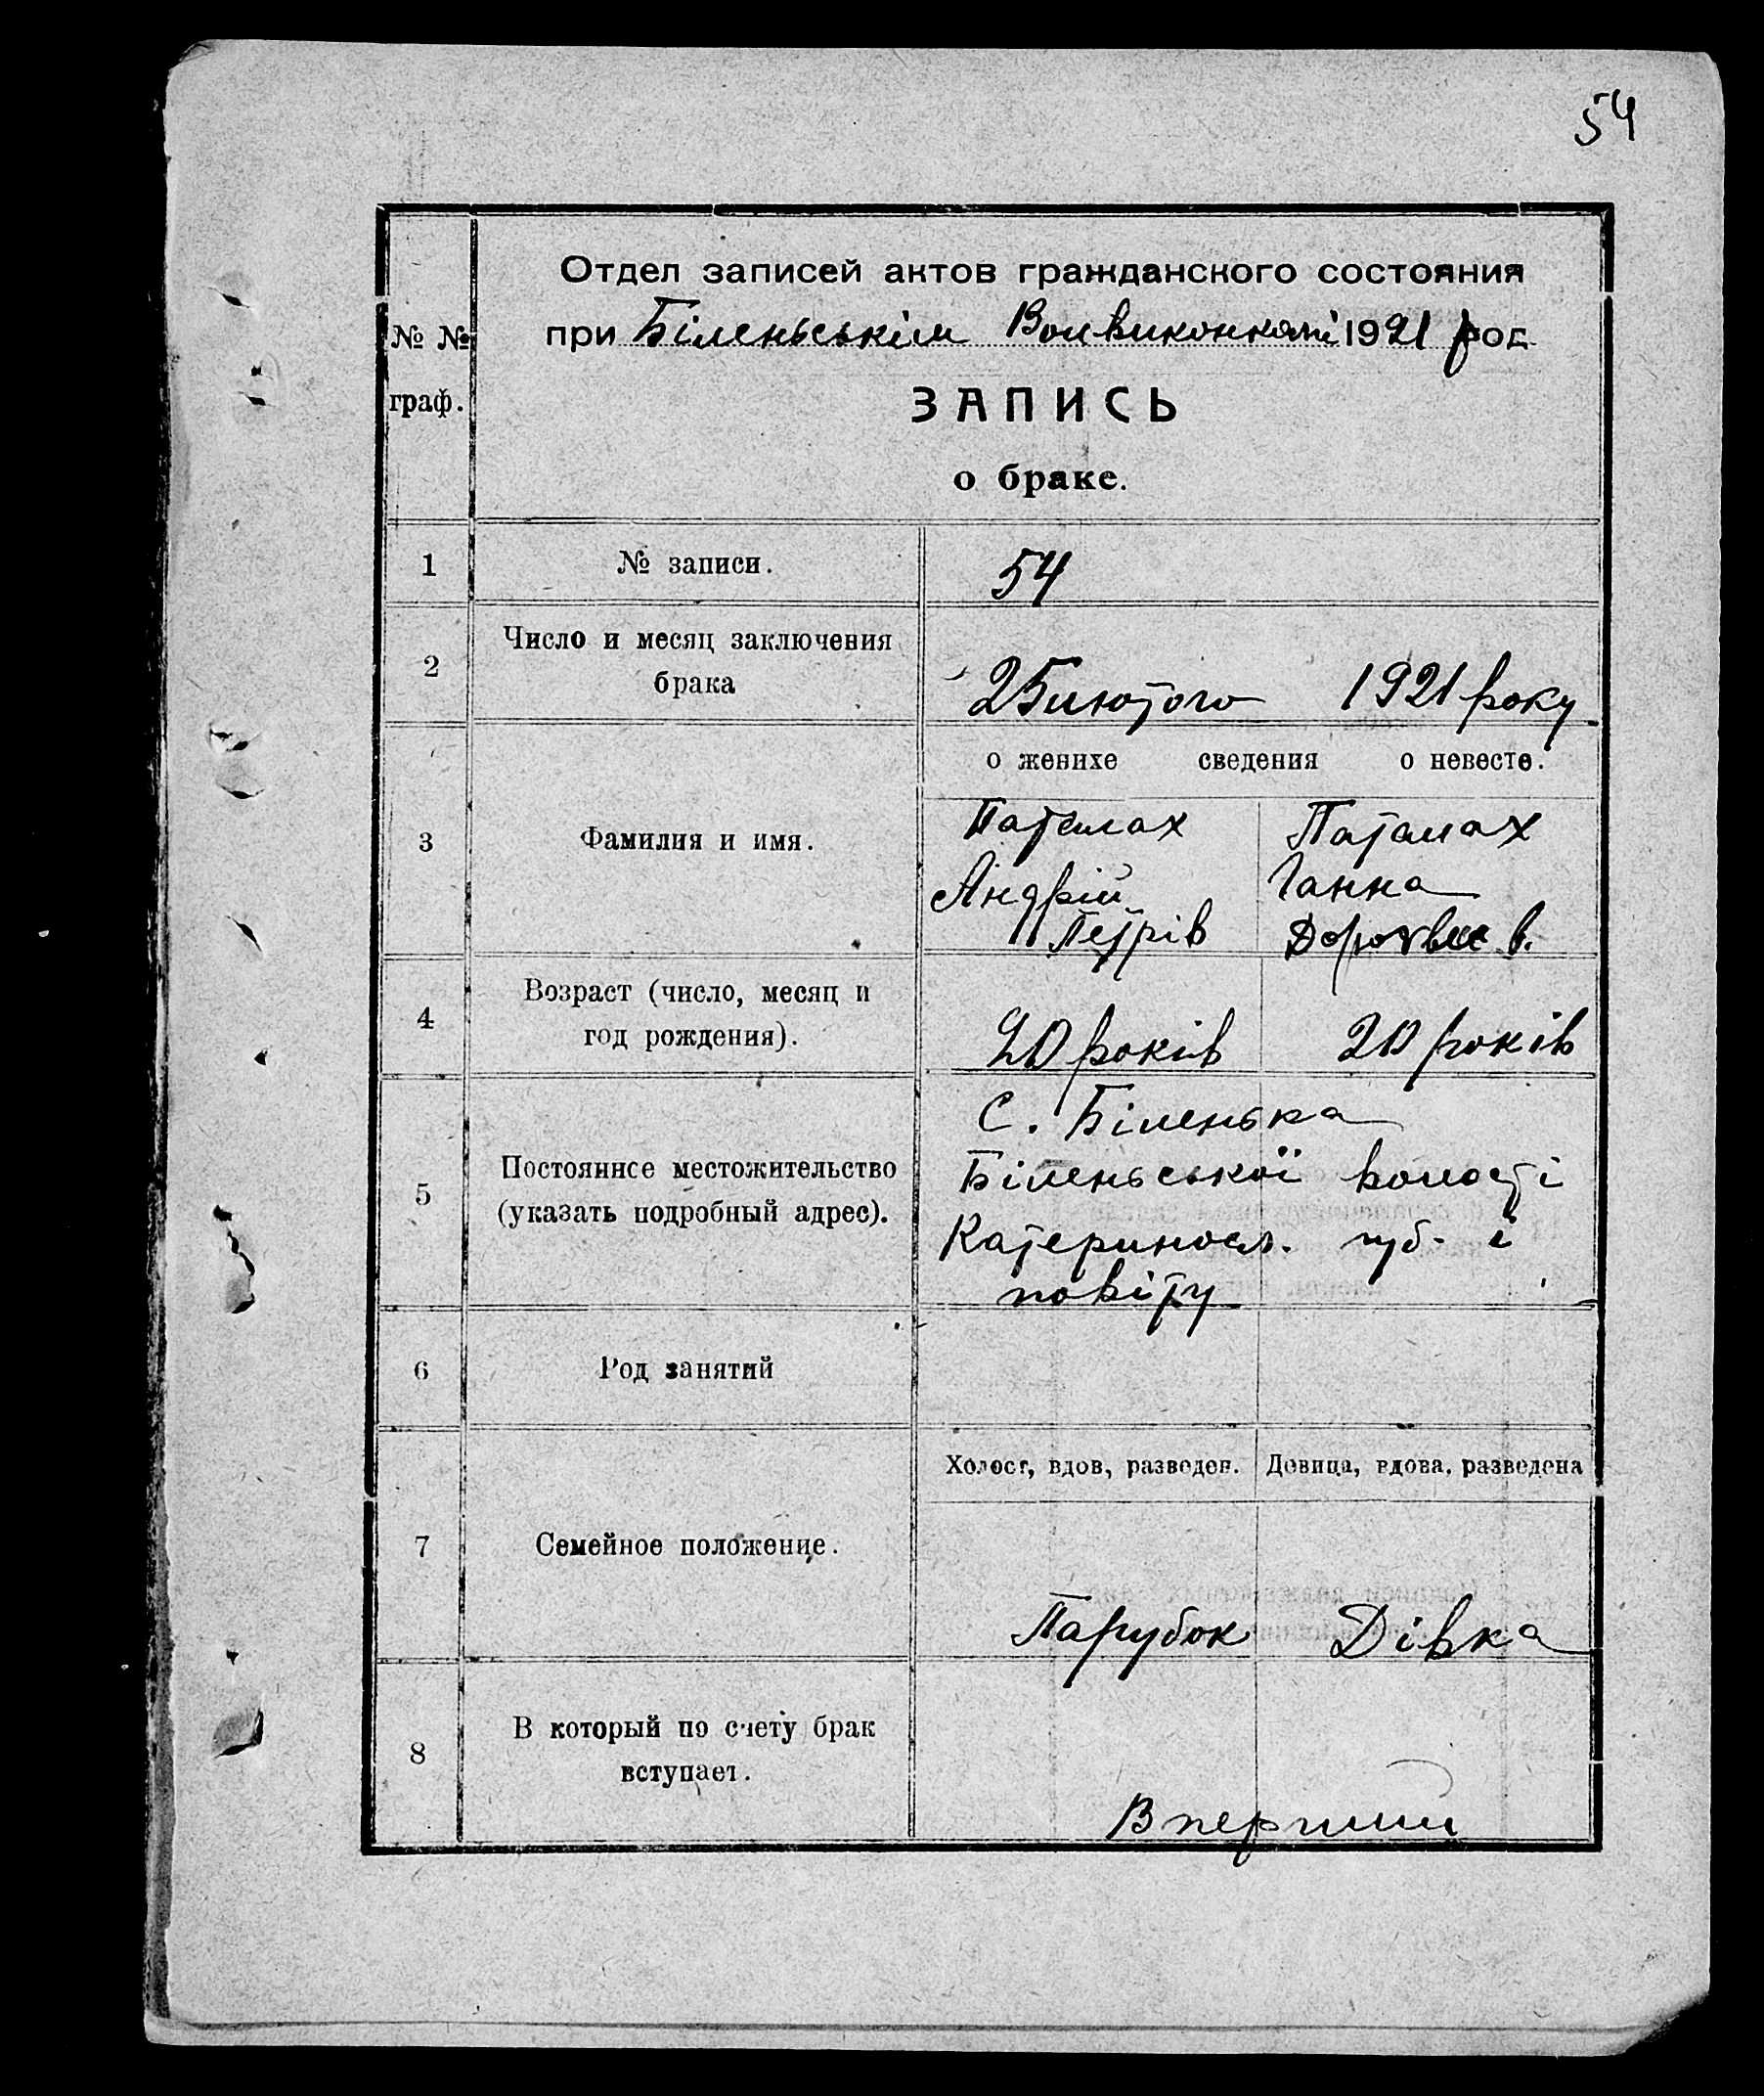 54
Отдел записей актов гражданского состояния
при Біленьськім Волвиконкомі 1921 год
№ №
граф.
ЗАПИСЬ
о браке.
1 № записи. 54
2 Число и месяц заключения
брака
25 лютого 1921 року
о женихе сведения о невесте.
3 Фамилия и имя.
Паталах Паталах
Андрій Ганна
Петрів
4 Возраст (число, месяц и
год рождения).
20 років 20 років
5 Постоянное местожительство
(указать подробный адрес).
С. Біленька
Біленьської волості
Катериносл. губ. і
повіту
6 Род занятий
7 Семейное положение.
Холост, вдов, разведен. Девица, вдова, разведена
Парубок Дівка
8 В который по счету брак
вступает.
В перший